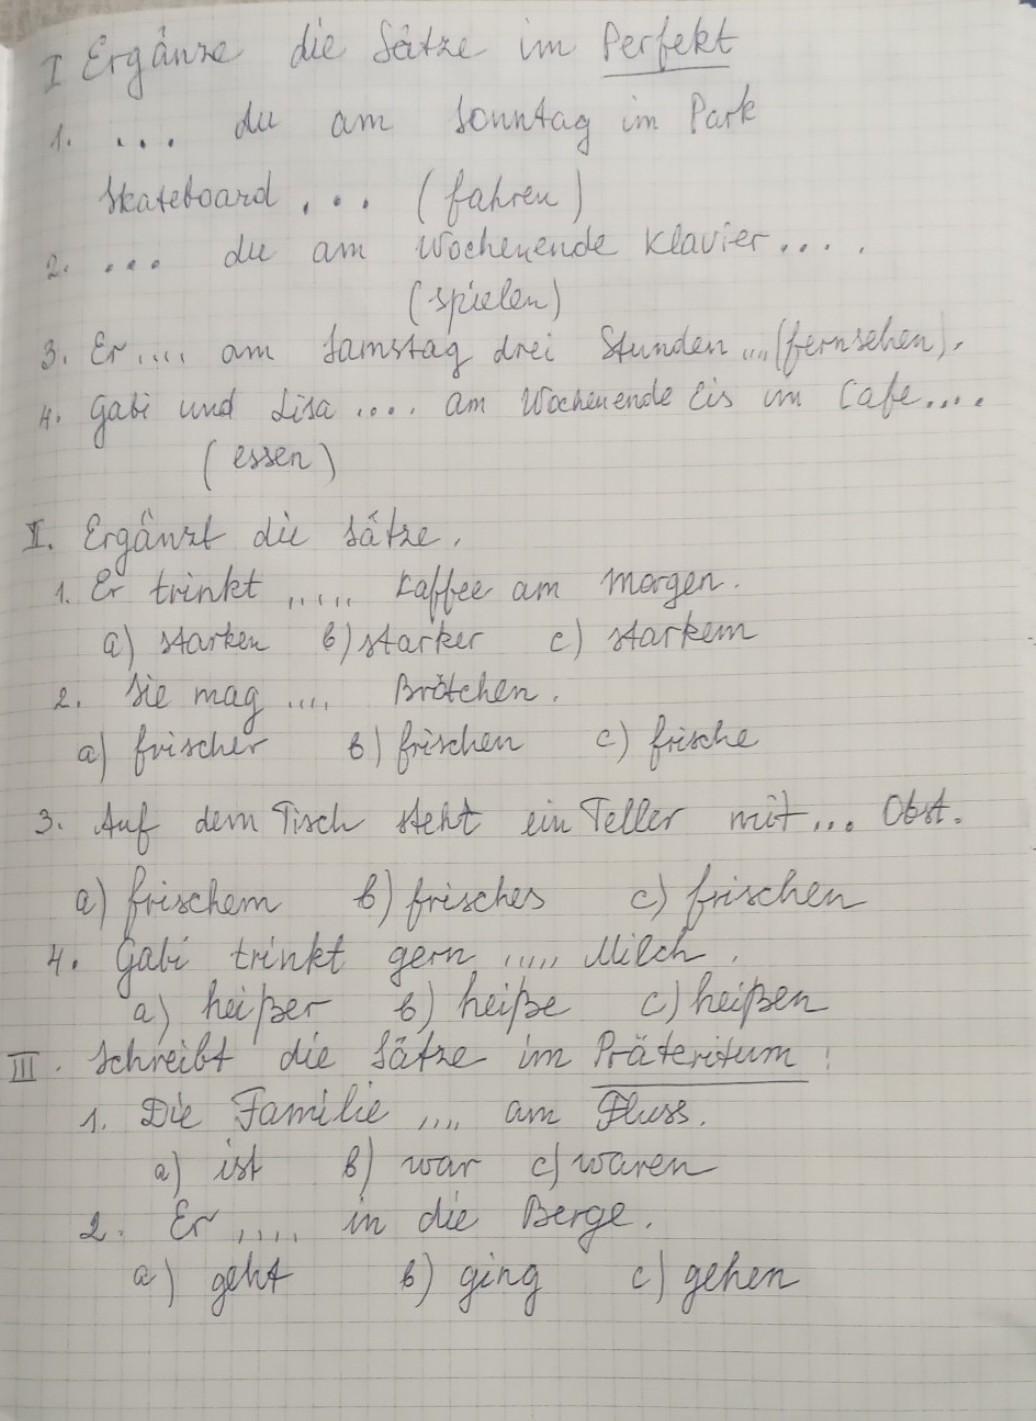 I Ergänze die Sätze im Perfekt
1. ... du am Sonntag im Park
Skateboard ... (fahren)
2. ... du am Wochenende Klavier ....
(spielen)
3. Er .... am Samstag drei Stunden .... (fernsehen).
4. Gabi und Lisa .... am Wochenende Eis im Cafe ....
(essen)
II. Ergänzt die Sätze.
1. Er trinkt ..... Kaffee am Morgen.
a) starken b) starker c) starkem
2. Sie mag .... Brötchen.
a) frischer b) frischen c) frische
3. Auf dem Tisch steht ein Teller mit ... Obst.
a) frischem b) frisches c) frischen
4. Gabi trinkt gern ..... Milch.
a) heißer b) heiße c) heißen
III. Schreibt die Sätze im Präteritum!
1. Die Familie .... am Fluss.
a) ist b) war c) waren
2. Er .... in die Berge.
a) geht b) ging c) gehen